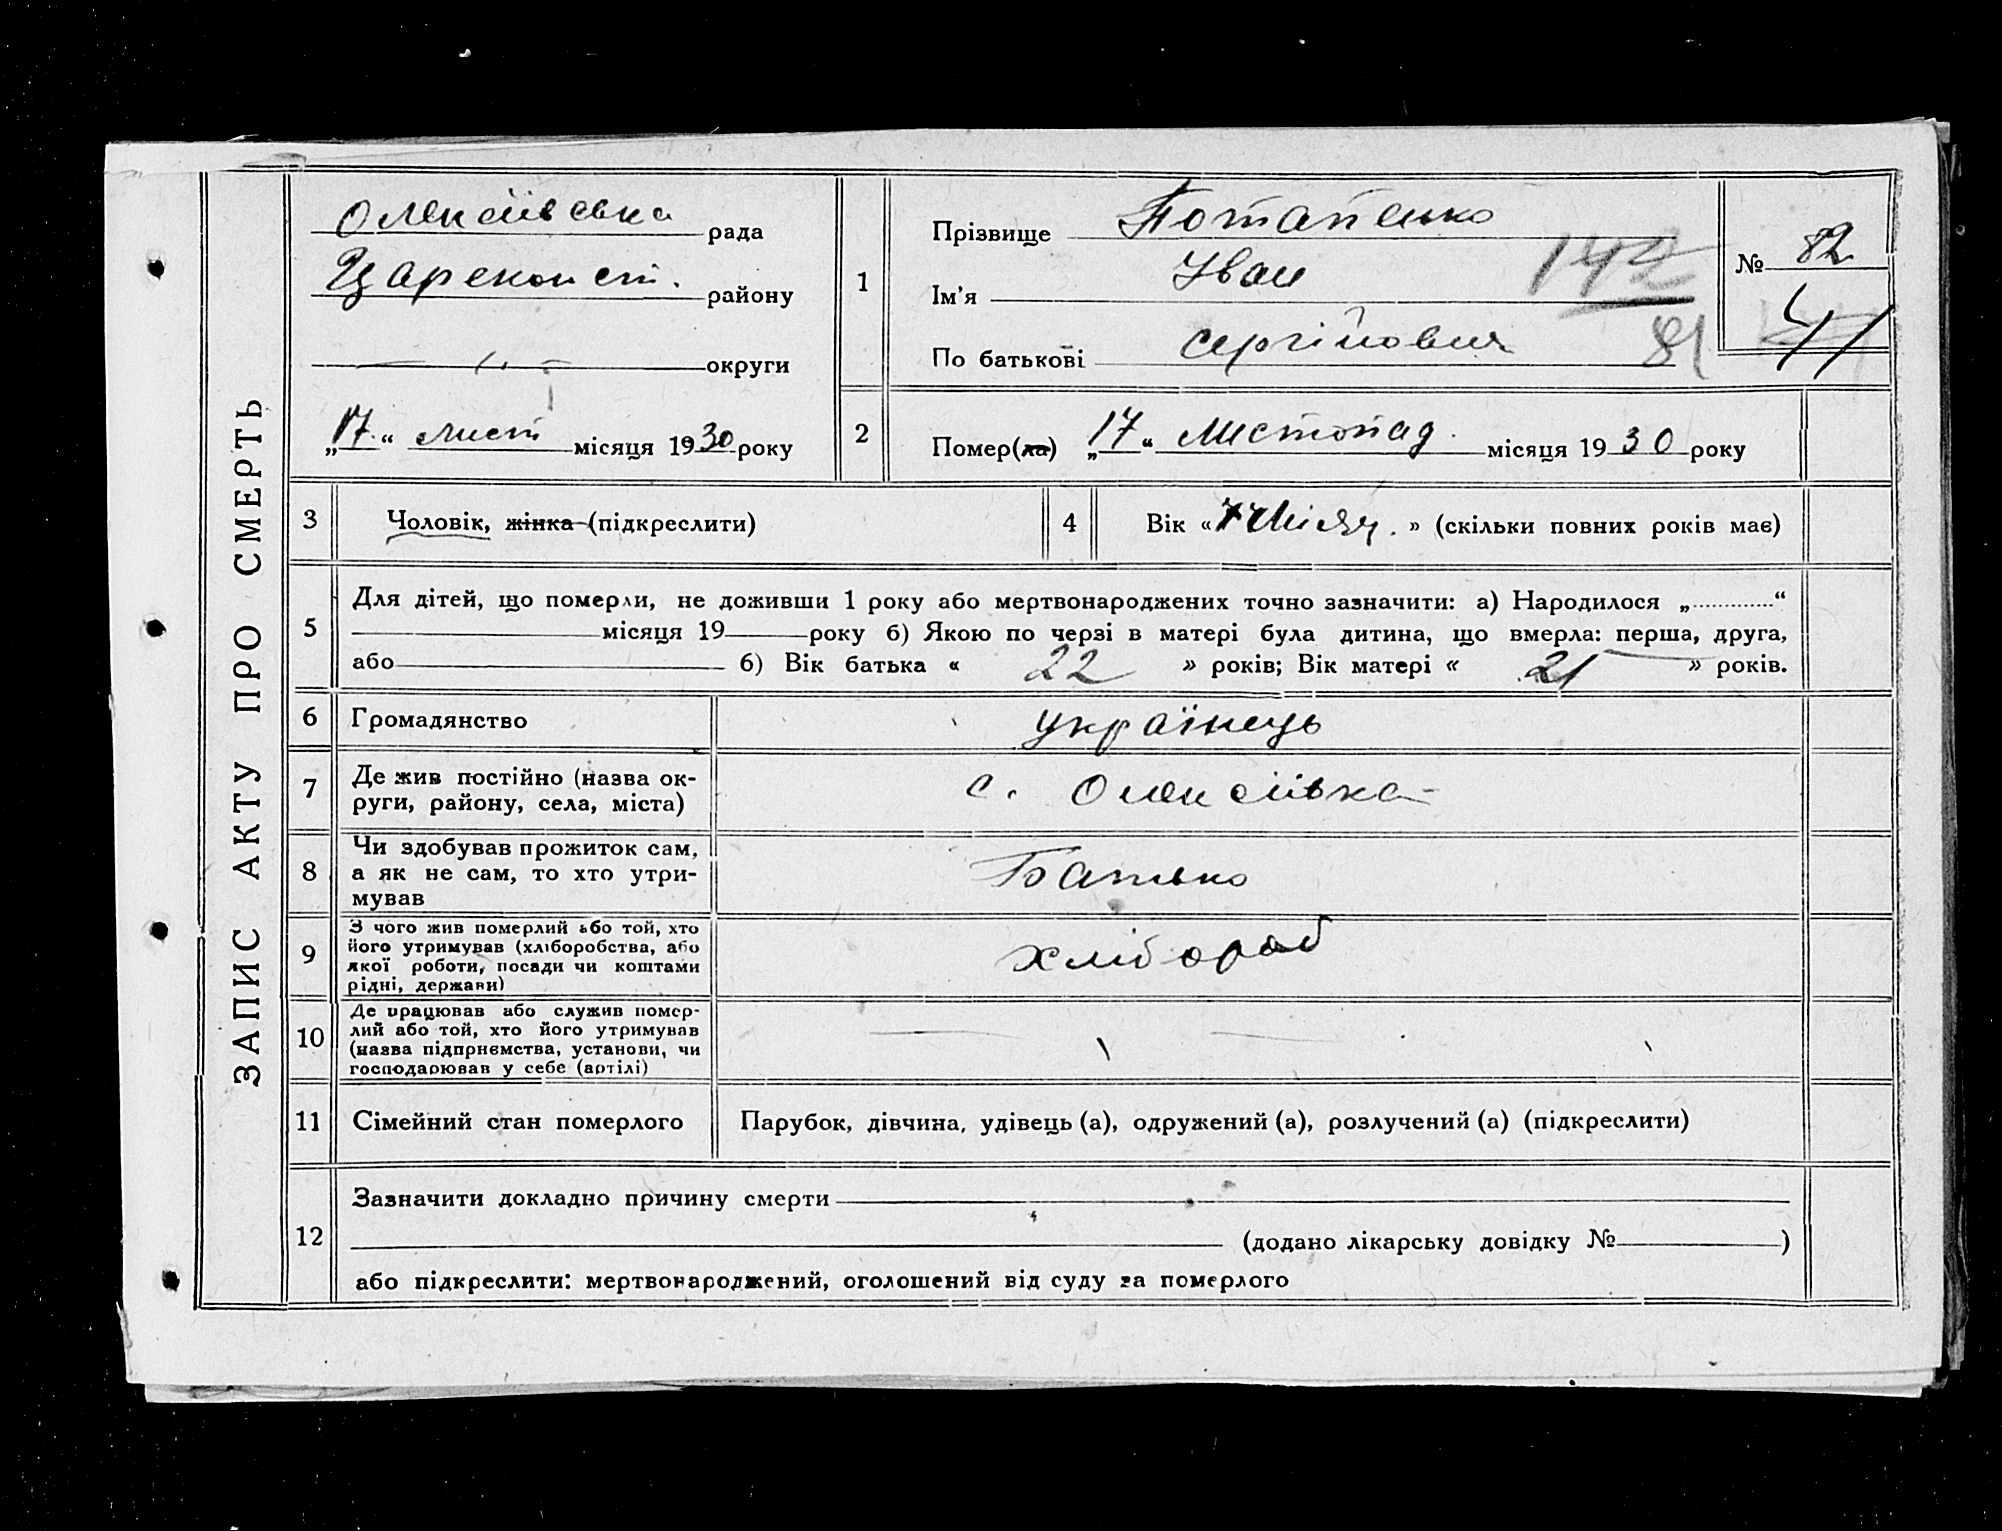 ЗАПИС АКТУ ПРО СМЕРТЬ
Олексіївська рада
Цареконст. району
округи
„17“ лист місяця 1930 року
1
Прізвище Потапенко
Ім'я Іван
По батькові Сергійович
142
81
№ 82
2
Помер(ла) „17“ Листопад місяця 1930 року
3 Чоловік, жінка (підкреслити)
4 Вік « місяц. » (скільки повних років має)
5 Для дітей, що померли, не доживши 1 року або мертвонароджених точно зазначити: а) Народилося „............“
місяця 19 року б) Якою по черзі в матері була дитина, що вмерла: перша, друга,
або б) Вік батька « 22 » років; Вік матері « 21 » років.
6 Громадянство українець
7 Де жив постійно (назва ок-
руги, району, села, міста)
с. Олексіївка
8 Чи здобував прожиток сам,
а як не сам, то хто утри-
мував
Батько
9 З чого жив померлий або той, хто
його утримував (хліборобства, або
якої роботи, посади чи коштами
рідні, держави)
хлібороб
10 Де працював або служив помер-
лий або той, хто його утримував
(назва підприємства, установи, чи
господарював у себе (артілі)
11 Сімейний стан померлого Парубок, дівчина, удівець (а), одружений (а), розлучений (а) (підкреслити)
12 Зазначити докладно причину смерти
(додано лікарську довідку № )
або підкреслити: мертвонароджений, оголошений від суду за померлого